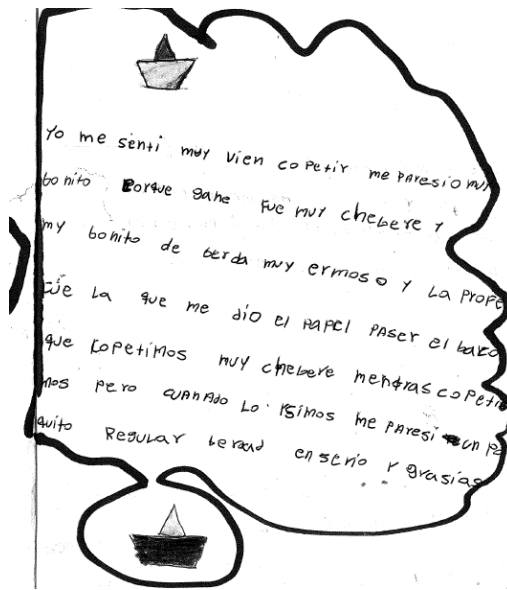 Yo me senti muy vien copetir me paresio muy
bonito Porque gane fue muy chebere y
my bonito de berda muy ermoso y La Profe
fue La que me dio el papel paser el barco
que copetimos muy chebere mentras copeti
mos pero cuanado Lo isimos me paresi un po
quito Regular berdad enserio y grasias